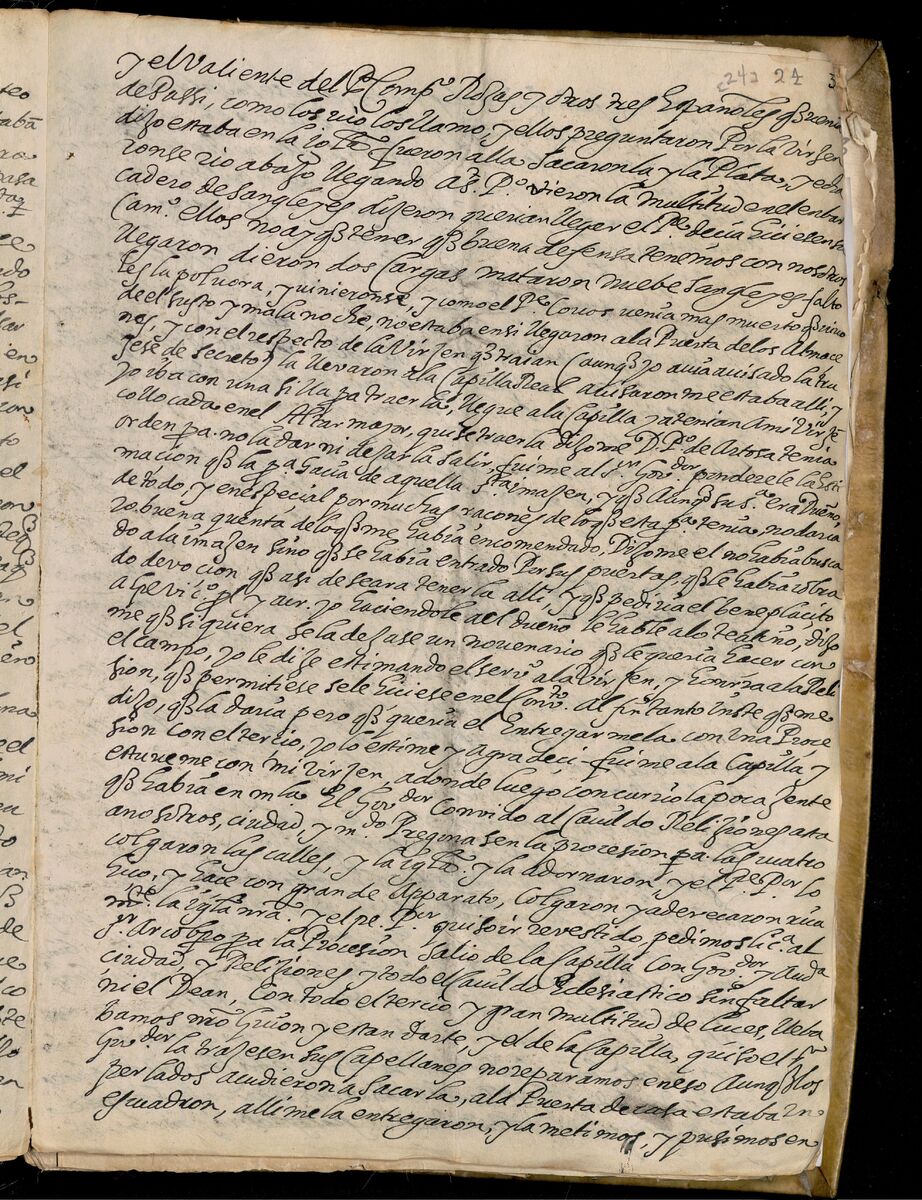 24a 24 3
y el Valiente del Pe Compo Rojas y otros tres Españoles qe venia
de Passi, como los vio los llamo, y ellos preguntaron Por la Virgen
dijo estaba en la fueron alla Sacaronla y la Plata, y echa
ronse rio abajo llegando a Po vieron la multitud en el enbar
cadero de sangleyes dijeron querian llegar el Pe decia hiciesen su
Camo ellos no ay qe temer qe buena defensa tenemos con nosotros
llegaron dieron dos Cargas mataron nuebe sangleyes falto
les la polvora, y vinieronse, y como el Pe Cobos venia mas muerto qe vivo
de el susto y mala noche, no estaba en si llegaron a la Puerta de los Almace
nes, y con el respecto de la Virgen qe traian (aunqe yo avia avisado la tru
jese de secreto) la llevaron a la Capilla Real avisaron me estaba alli, y
yo iba con una silla pa traerla, llegue a la Capilla ya tenian a mi Virgē
collocada en el Altar major, quise traerla dijome D. Po de tenia
orden pa no la dar ni dejarla salir, fuime al sr Govdor ponderele la esti
macion qe la pa hacia de aquella sta imagen, y qe Aunqe su sa era Dueño,
de todo y en especial por muchas racones de lo qe esta pa tenia, no daria
yo buena quenta de lo qe me habia encomendado, Dijome el no habia busca
do a la imagen sino qe se habia entrado Por sus puertas, qe le habia cobra
do devocion qe asi deseara tenerla alli, y qe pediria el beneplacito
a yo haciendole a el dueño le hable a lo dijo
me qe si quiera se la dejase un novenario qe le queria hacer con
el campo, yo le dije estimando el servo a la Virgen, y honrra a la Reli
sion, qe permitiese se le hiciese en el Convo. al fin tanto inste qe me
dijo, qe la daria pero qe queria el Entregarmela con una Proce
sion con el tercio, yo lo estime y agradeci - fuime a la Capilla y
estuve me con mi Virgen, adonde luego concurrio la poca gente
qe habia en mla El Govdor Convido al Cavildo Relijiones ata
a nosotros, ciudad, y mdo Pregonasen la procesion pa las cuatro
colgaron las calles, y la iglā. y la adornaron, y el Pe Por lo
hico, y hace con grande Apparato, Colgaron y aderecaron rica
mte la iglā nrā. y el pe Por quiso ir revestido, pedimos lica al
sr Arcobpo pa la Procesion Salio de la Capilla con Govdor y Auda
ciudad, y Relijiones y todo el Cavildo Eclesiastico sin faltar
ni el Dean, Con todo el tercio y gran multitud de luces, lleba
bamos nrō Guion y estandarte, y el de la Capilla, quiso el sr
Govdor la trajesen sus Capellanes no reparamos en eso Aunqe los
perlados acudieron a sacarla, a la Puerta de casa estaba un
escuadron, alli me la entregaron, y la metimos, y pusimos en